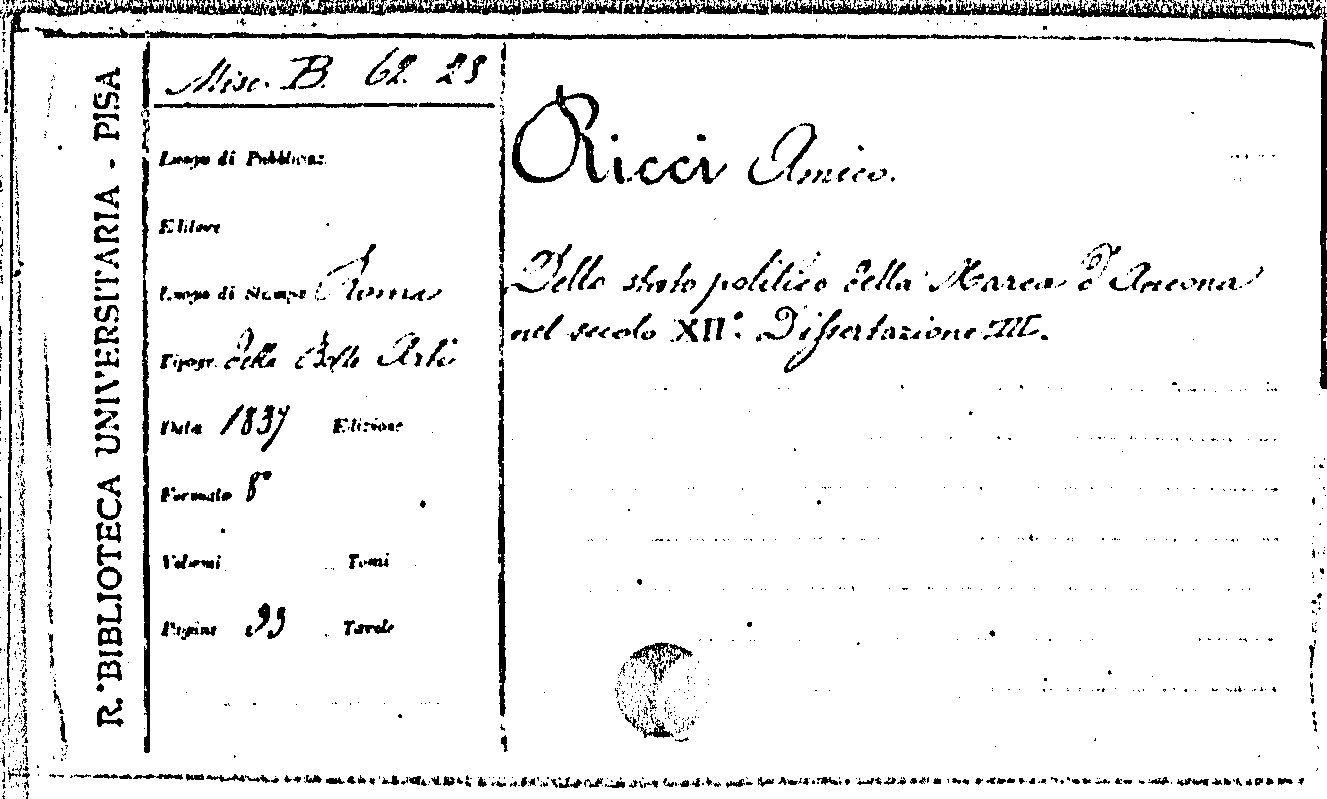 R. BIBLIOTECA UNIVERSITARIA - PISA
Misc. B. 62. 25
Luogo di Pubblicaz.
Editore
Luogo di Stampa Roma
Tipogr. delle Belle Arti
Data 1837 Edizione
Formato 8°
Volumi Tomi
Pagine 33 Tavole
Ricci Amico.
Dello stato politico della Marca d'Ancona
nel secolo XII°. Dissertazione III.